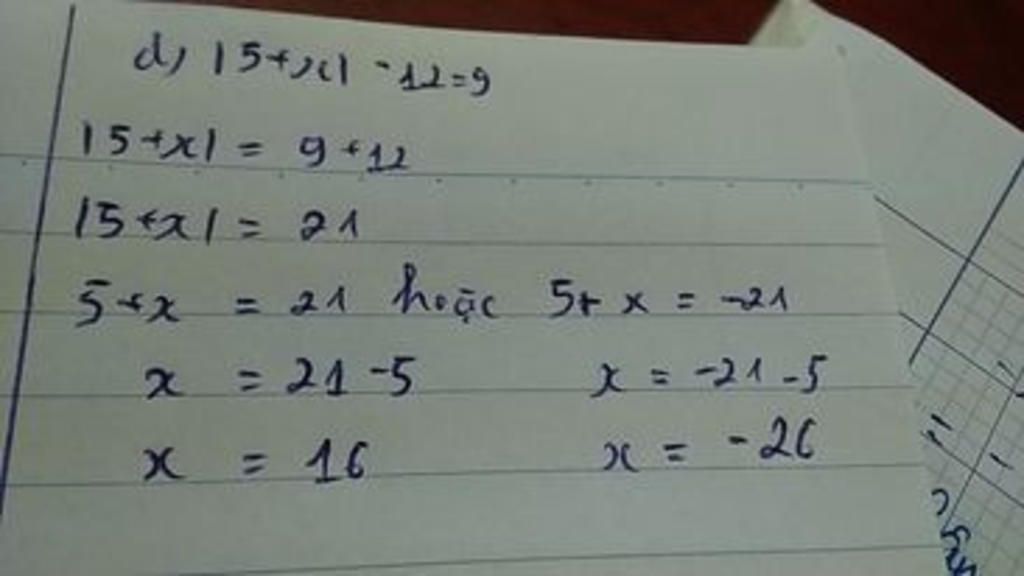 d, |5+x| - 12 = 9
|5+x| = 9 + 12
|5+x| = 21
5+x = 21 hoặc 5+ x = -21
x = 21 - 5 x = -21 - 5
x = 16 x = -26